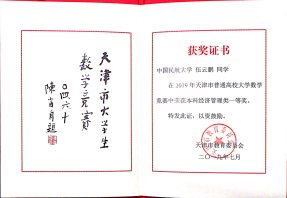 天津市大学生
数学竞赛
陈省身题
获奖证书
中国民航大学 伍云鹏 同学
在 2019 年天津市普通高校大学数学
竞赛中荣获本科经济管理类一等奖。
特发此证，以资鼓励。
天津市教育委员会
二〇一九年七月